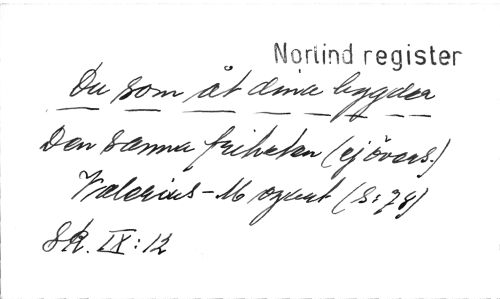 Norlind register
Du som åt dina bygder
Den sanna friheten (ej övers.)
Valerius - Mozart (S: 78)
SR. IX: 12